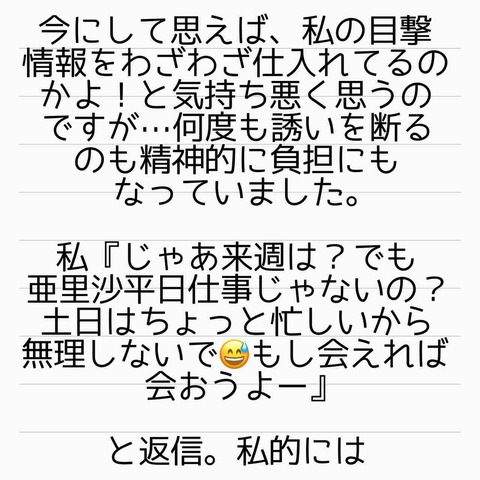 今にして思えば、私の目撃
情報をわざわざ仕入れてるの
かよ！と気持ち悪く思うの
ですが…何度も誘いを断る
のも精神的に負担にも
なっていました。
私『じゃあ来週は？でも
亜里沙平日仕事じゃないの？
土日はちょっと忙しいから
無理しないで😅もし会えれば
会おうよー』
と返信。私的には